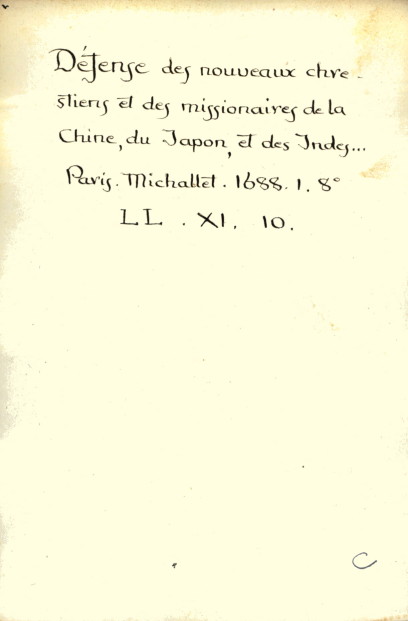 Défense des nouveaux chre-
stiens et des missionaires de la
Chine, du Japon, et des Indes...
Paris. Michallet. 1688. 1. 8°
LL. XI. 10.
C